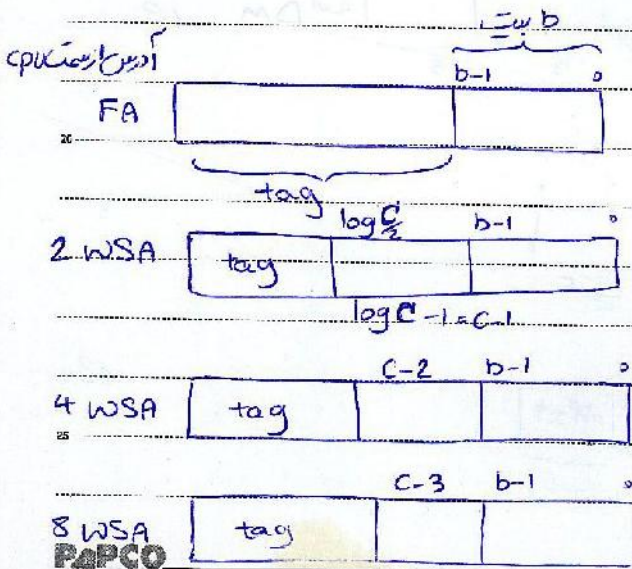 b بیت
آدرس از سمت cpu
b-1 0
FA
20
tag
log C/2 b-1 0
2 WSA tag
log C -1 = C-1
C-2 b-1 0
4 WSA tag
25
C-3 b-1 0
8 WSA tag
PAPCO